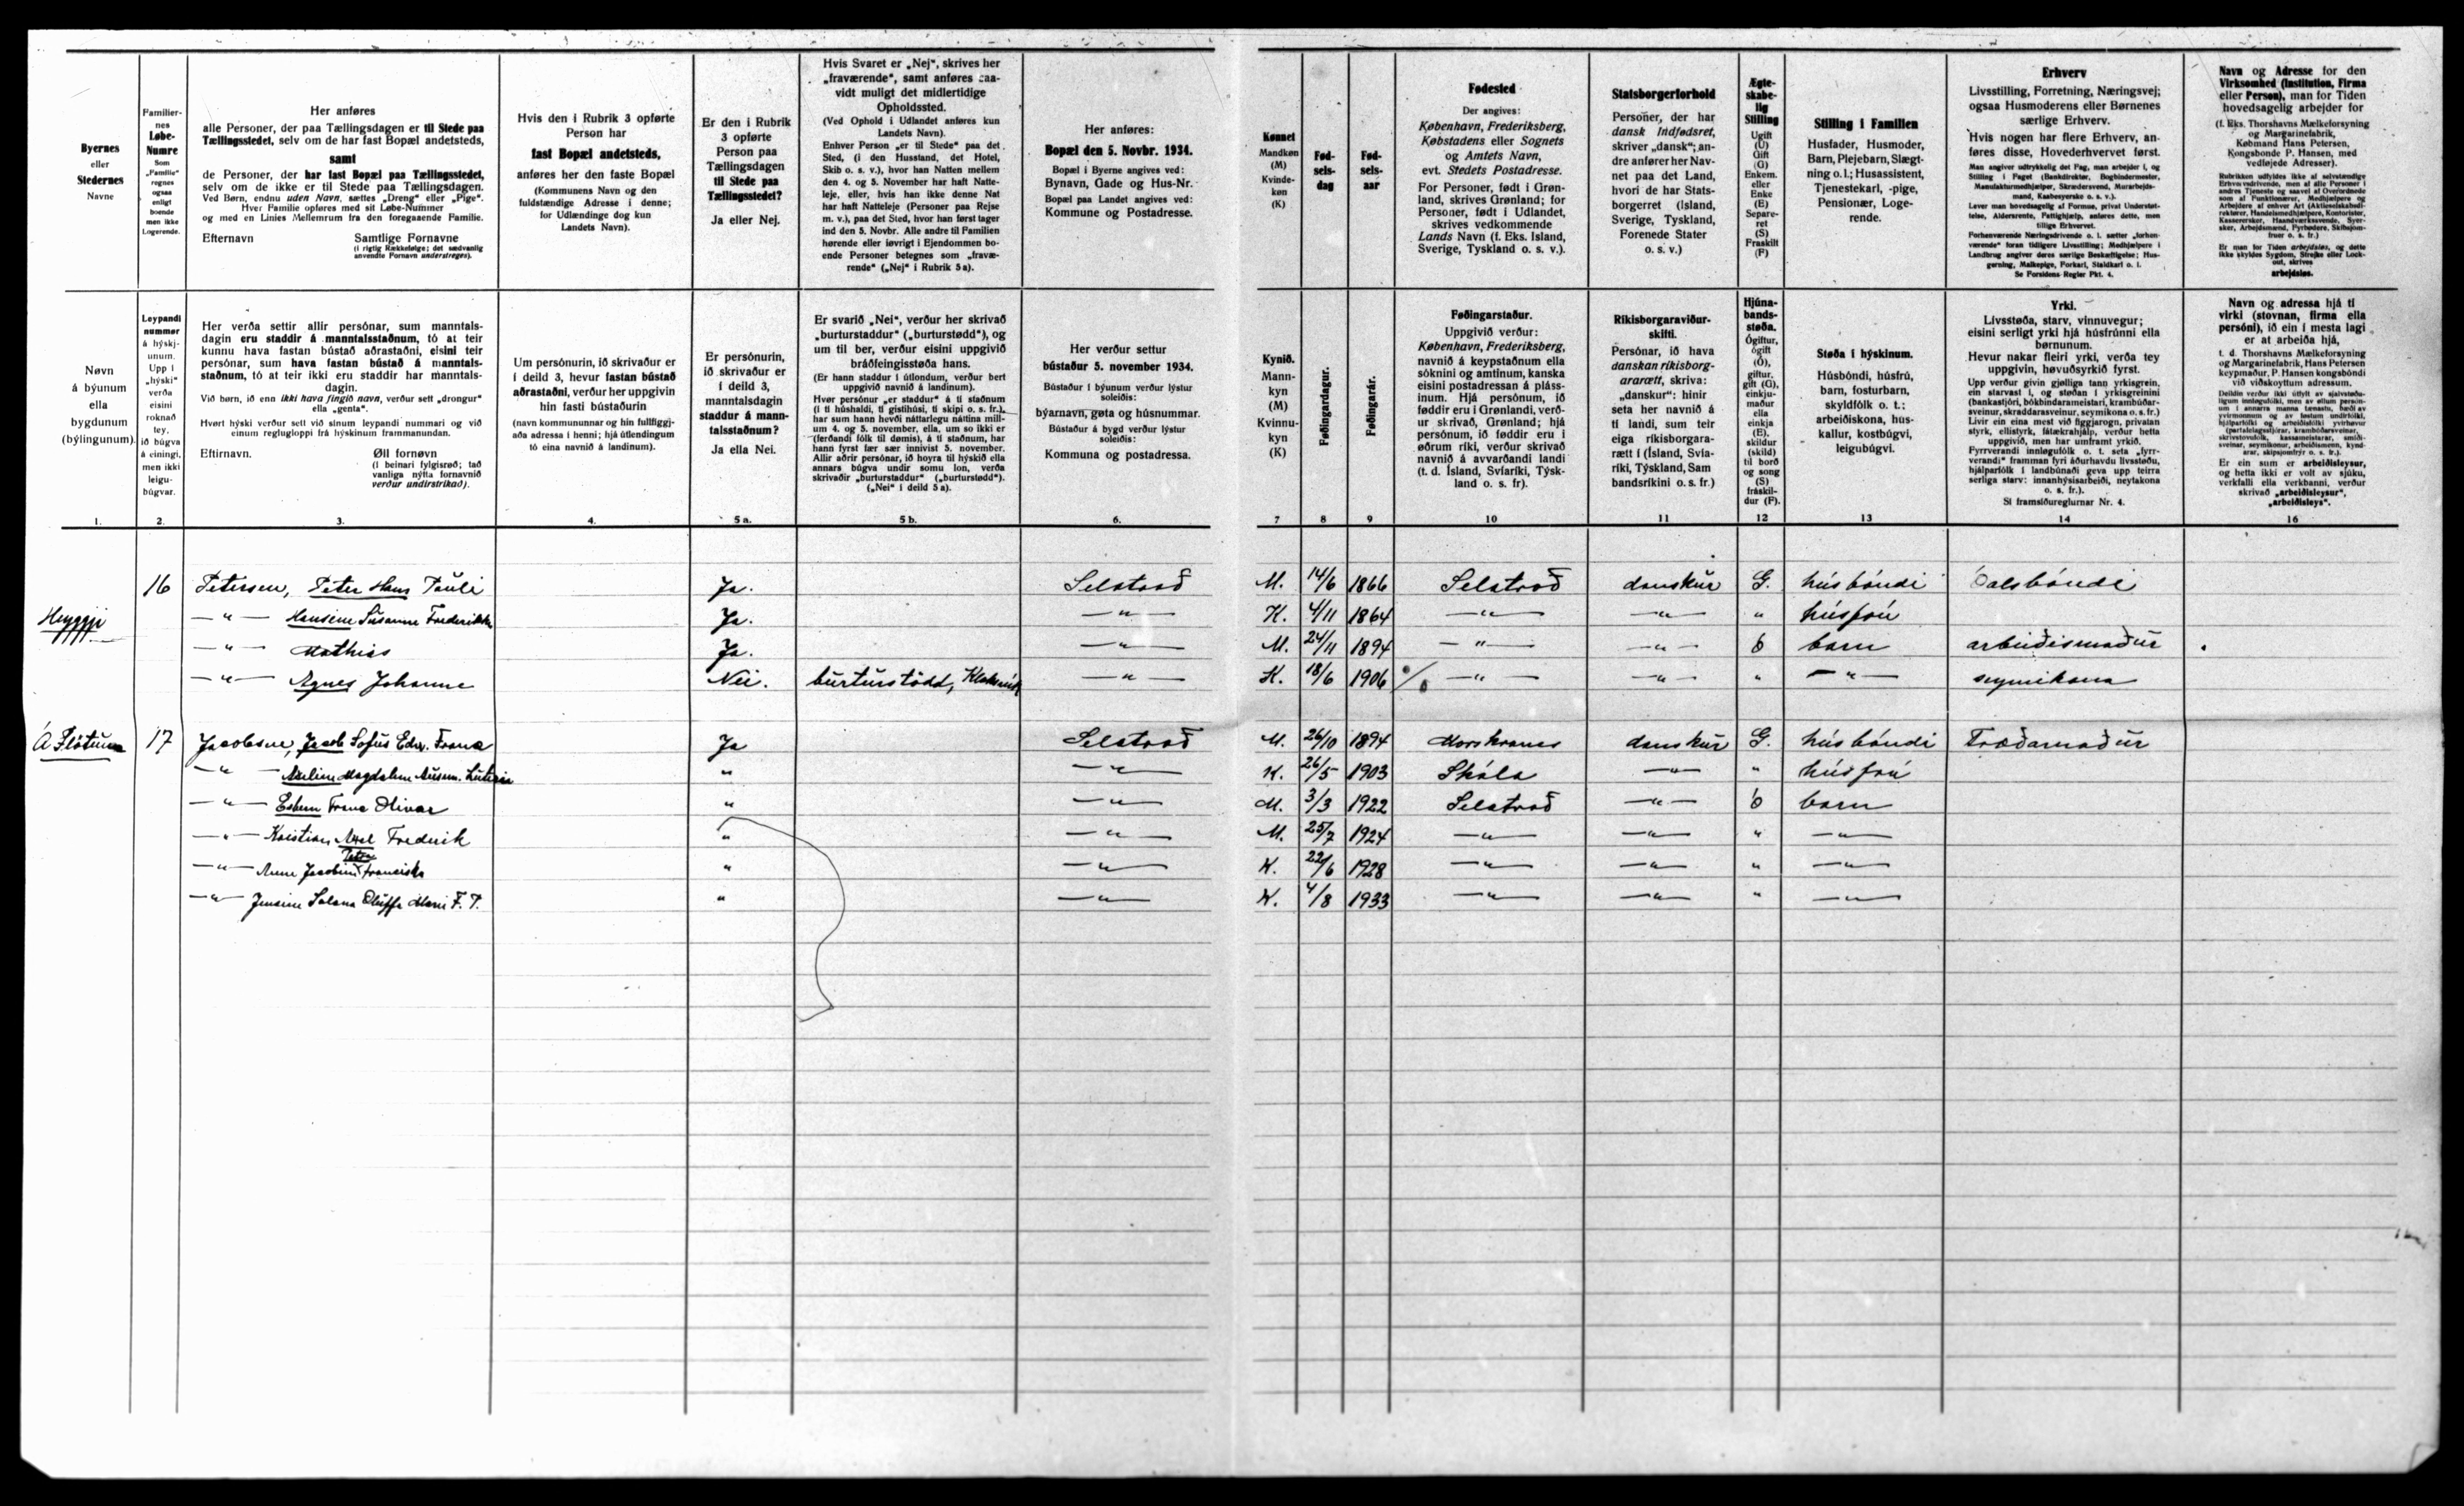 Byernes
eller
Stedernes
Navne
Familier-
nes
Løbe-
Numre
Som
„Familie"
regnes
ogsaa
enligt
boende
men ikke
Logerende.
Her anføres
alle Personer, der paa Tællingsdagen er til Stede paa
Tællingsstedet, selv om de har fast Bopæl andetsteds,
samt
de Personer, der har fast Bopæl paa Tællingsstedet,
selv om de ikke er til Stede paa Tællingsdagen.
Ved Børn, endnu uden Navn, sættes „Dreng" eller „Pige".
Hver Familie opføres med sit Løbe-Nummer
og med en Linies Mellemrum fra den foregaaende Familie.
Efternavn Samtlige Fornavne
(i rigtig Rækkefølge; det sædvanlig
anvendte Fornavn understreges).
Hvis den i Rubrik 3 opførte
Person har
fast Bopæl andetsteds,
anføres her den faste Bopæl
(Kommunens Navn og den
fuldstændige Adresse i denne;
for Udlændinge dog kun
Landets Navn).
Er den i Rubrik
3 opførte
Person paa
Tællingsdagen
til Stede paa
Tællingsstedet?
Ja eller Nej.
Hvis Svaret er „Nej", skrives her
„fraværende", samt anføres saa-
vidt muligt det midlertidige
Opholdssted.
(Ved Ophold i Udlandet anføres kun
Landets Navn).
Enhver Person „er til Stede" paa det
Sted, (i den Husstand, det Hotel,
Skib o. s. v.), hvor han Natten mellem
den 4. og 5. November har haft Natte-
leje, eller, hvis han ikke denne Nat
har haft Natteleje (Personer paa Rejse
m. v.), paa det Sted, hvor han først tager
ind den 5. Novbr. Alle andre til Familien
hørende eller iøvrigt i Ejendommen bo-
ende Personer betegnes som „fravæ-
rende" („Nej" i Rubrik 5 a).
Her anføres:
Bopæl den 5. Novbr. 1934.
Bopæl i Byerne angives ved:
Bynavn, Gade og Hus-Nr.
Bopæl paa Landet angives ved:
Kommune og Postadresse.
Kønnet
Mandkøn
(M)
Kvinde-
køn
(K)
Fød-
sels-
dag
Fød-
sels-
aar
Fødested
Der angives:
København, Frederiksberg,
Købstadens eller Sognets
og Amtets Navn,
evt. Stedets Postadresse.
For Personer, født i Grøn-
land, skrives Grønland; for
Personer, født i Udlandet,
skrives vedkommende
Lands Navn (f. Eks. Island,
Sverige, Tyskland o. s. v.).
Statsborgerforhold
Personer, der har
dansk Indfødsret,
skriver „dansk"; an-
dre anfører her Nav-
net paa det Land,
hvori de har Stats-
borgerret (Island,
Sverige, Tyskland,
Forenede Stater
o. s. v.)
Ægte-
skabe-
lig
Stilling
Ugift
(U)
Gift
(G)
Enkem.
eller
Enke
(E)
Separe-
ret
(S)
Fraskilt
(F)
Stilling i Familien
Husfader, Husmoder,
Barn, Plejebarn, Slægt-
ning o. l.; Husassistent,
Tjenestekarl, -pige,
Pensionær, Loge-
rende.
Erhverv
Livsstilling, Forretning, Næringsvej;
ogsaa Husmoderens eller Børnenes
særlige Erhverv.
Hvis nogen har flere Erhverv, an-
føres disse, Hovederhvervet først.
Man angiver udtrykkelig det Fag, man arbejder i, og
Stilling i Faget (Bankdirektør, Bogbindermester,
Manufakturmedhjælper, Skrædersvend, Murarbejds-
mand, Kaabesyerske o. s. v.).
Lever man hovedsagelig af Formue, privat Understøt-
telse, Aldersrente, Fattighjælp, anføres dette, men
tillige Erhvervet.
Forhenværende Næringsdrivende o. l. sætter „forhen-
værende" foran tidligere Livsstilling; Medhjælpere i
Landbrug angiver deres særlige Beskæftigelse; Hus-
gerning, Malkepige, Forkarl, Staldkarl o. l.
Se Forsidens Regler Pkt. 4.
Navn og Adresse for den
Virksomhed (Institution, Firma
eller Person), man for Tiden
hovedsagelig arbejder for
(f. Eks. Thorshavns Mælkeforsyning
og Margarinefabrik,
Købmand Hans Petersen,
Kongsbonde P. Hansen, med
vedføjede Adresser).
Rubrikken udfyldes ikke af selvstændige
Erhvervsdrivende, men af alle Personer i
andres Tjeneste og saavel af Overordnede
som af Funktionærer, Medhjælpere og
Arbejdere af enhver Art (Aktieselskabsdi-
rektører, Handelsmedhjælpere, Kontorister,
Kasserersker, Haandværkssvende, Syer-
sker, Arbejdsmænd, Fyrbødere, Skibsjom-
fruer o. s. fr.)
Er man for Tiden arbejdsløs, og dette
ikke skyldes Sygdom, Strejke eller Lock-
out, skrives
arbejdsløs.
Nøvn
á býunum
ella
bygdunum
(býlingunum).
Leypandi
nummør
á hýskj-
unum.
Upp í
„hýski"
verða
eisini
roknað
tey,
ið búgva
á eini­ngi,
men ikki
leigu-
búgvar.
Her verða settir allir persónar, sum manntals-
dagin eru staddir á manntalsstaðnum, tó at teir
kunnu hava fastan bústað aðrastaðni, eisini teir
persónar, sum hava fastan bústað á manntals-
staðnum, tó at teir ikki eru staddir har manntals-
dagin.
Við børn, ið enn ikki hava fingið navn, verður sett „drongur"
ella „genta".
Hvørt hýski verður sett við sínum leypandi nummari og við
einum reglugloppi frá hýskinum frammanundan.
Eftirnavn. Øll fornøvn
(í beinari fylgisrøð; tað
vanliga nýtta fornavnið
verður undirstrikað).
Um persónurin, ið skrivaður er
í deild 3, hevur fastan bústað
aðrastaðni, verður her uppgivin
hin fasti bústaðurin
(navn kommununnar og hin fullfiggj-
aða adressa í henni; hjá útlendingum
tó eina navnið á landinum).
Er persónurin,
ið skrivaður er
í deild 3,
manntalsdagin
staddur á mann-
talsstaðnum?
Ja ella Nei.
Er svarið „Nei", verður her skrivað
„burturstaddur" („burturstødd"), og
um til ber, verður eisini uppgivið
bráðfeingisstøða hans.
(Er hann staddur í útlondum, verður bert
uppgivið navnið á landinum).
Hvør persónur „er staddur" á tí staðnum
(í tí húshaldi, tí gistihúsi, tí skipi o. s. fr.),
har sum hann hevði náttarlegu náttina mill-
um 4. og 5. november, ella, um so ikki er
(ferðandi fólk til dømis), á tí staðnum, har
hann fyrst fær sær innivist 5. november.
Allir aðrir persónar, ið hoyra til hýskið ella
annars búgva undir somu lon, verða
skrivaðir „burturstaddur" („burturstødd").
(„Nei" í deild 5 a).
Her verður settur
bústaður 5. november 1934.
Bústaður í býunum verður lýstur
soleiðis:
býarnavn, gøta og húsnummar.
Bústaður á bygd verður lýstur
soleiðis:
Kommuna og postadressa.
Kynið.
Mann-
kyn
(M)
Kvinnu-
kyn
(K)
Føðingardagur.
Føðingarár.
Føðingarstaður.
Uppgivið verður:
København, Frederiksberg,
navnið á keypstaðnum ella
sóknini og amtinum, kanska
eisini postadressan á pláss-
inum. Hjá persónum, ið
føddir eru í Grønlandi, verð-
ur skrivað, Grønland; hjá
persónum, ið føddir eru í
øðrum ríki, verður skrivað
navnið á avvarðandi landi
(t. d. Ísland, Svíaríki, Týsk-
land o. s. fr).
Ríkisborgaraviður-
skifti.
Persónar, ið hava
danskan ríkisborg-
ararætt, skriva:
„danskur": hinir
seta her navnið á
tí landi, sum teir
eiga ríkisborgara-
rætt í (Ísland, Svía-
ríki, Týskland, Sam
bandsríkini o. s. fr.)
Hjúna-
bands-
støða.
Ógiftur,
ógift
(Ó),
giftur,
gift (G),
einkju-
maður
ella
einkja
(E),
skildur
(skild)
til borð
og song
(S)
fráskil-
dur (F).
Støða í hýskinum.
Húsbóndi, húsfrú,
barn, fosturbarn,
skyldfólk o. t.;
arbeiðiskona, hus-
kallur, kostbúgvi,
leigubúgvi.
Yrki.
Livsstøða, starv, vinnuvegur;
eisini serligt yrki hjá húsfrúnni ella
børnunum.
Hevur nakar fleiri yrki, verða tey
uppgivin, høvuðsyrkið fyrst.
Upp verður givin gjølliga tann yrkisgrein,
ein starvast í, og støðan í yrkisgreinini
(bankastjóri, bókbindarameistari, krambúðar-
sveinur, skraddarasveinur, seymikona o. s. fr.)
Livir ein eina mest við figgjarogn, privatan
styrk, ellistyrk, fátækrahjálp, verður hetta
uppgivið, men har umframt yrkið.
Fyrrverandi innløgufólk o. t. seta „fyrr-
verandi" framman fyri áðurhavdu livsstøðu,
hjálparfólk í landbúnaði geva upp teirra
serliga starv: innanhýsisarbeiði, neytakona
o. s. fr.).
Sí framsíðureglurnar Nr. 4.
Navn og adressa hjá tí
virki (stovnan, firma ella
persóni), ið ein í mesta lagi
er at arbeiða hjá,
t. d. Thorshavns Mælkeforsyning
og Margarinefabrik, Hans Petersen
keypmaður, P. Hansen kongsbóndi
við viðskoyttum adressum.
Er ein sum er arbeiðsleysur,
og hetta ikki er volt av sjúku,
verkfalli ella verkbanni, verður
skrivað „arbeiðisleysur",
„arbeiðisleys".
1. 2. 3. 4. 5 a. 5 b. 6. 7 8 9 10 11 12 13 14 16
16 Petersen, Peter Hans Pauli Ja. Selatrað M. 14/6 1866 Selatrað danskur G. húsbóndi óalsbóndi
Heyggji — " — Hansine Susanne Frederikke Ja. — " — K. 4/11 1864 — " — — " — " húsfrú
— " — Mathias Ja. — " — M. 24/11 1894 — " — — " — ó barn arbeiðismaður
— " — Agnes Johanne Nei. burturstödd, Klaksvík — " — K. 18/6 1906 — " — — " — " — " — seymikona
Á Fløtum 17 Jacobsen, Jacob Sofus Edw. Franz Ja Selatrað M. 26/10 1894 Morskranes danskur G. húsbóndi Traðarmaður
— " — Magdalena " — " — K. 26/5 1903 Skála — " — " húsfrú
— " — Esbern Franz Olivar " — " — M. 3/3 1922 Selatrað — " — ó barn
— " — Kristian Axel Frederik " — " — M. 25/7 1924 — " — — " — " — " —
Petra
— " — Anne Jacobine Franciska " — " — K. 22/6 1928 — " — — " — " — " —
— " — Jensine Salana Oluffa Marie F. P. " — " — K. 4/8 1933 — " — — " — " — " —